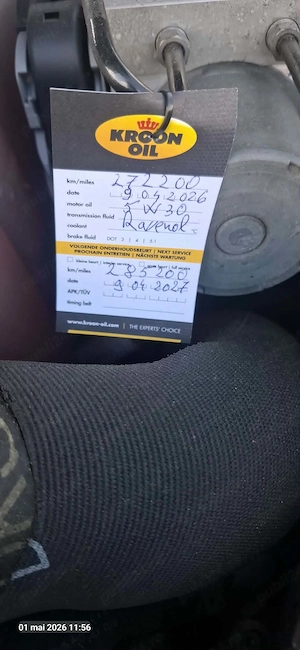 KROON
OIL
km/miles 272200
date 9.04.2026
motor oil 5W30
transmission fluid
coolant Ravenol °C
brake fluid DOT 3 | 4 | 5.1
VOLGENDE ONDERHOUDSBEURT | NEXT SERVICE
PROCHAIN ENTRETIEN | NÄCHSTE WARTUNG
km/miles 283200
date 9.04.2027
APK/TÜV
timing belt
www.kroon-oil.com | THE EXPERTS' CHOICE
01 mai 2026 11:56